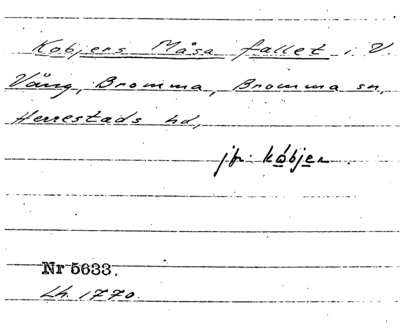 Kobjers Måsa fallet i V.
Vång, Bromma, Bromma sn,
Herrestads hd,
jfr kobjer
Nr 5633.
Lh. 1770.